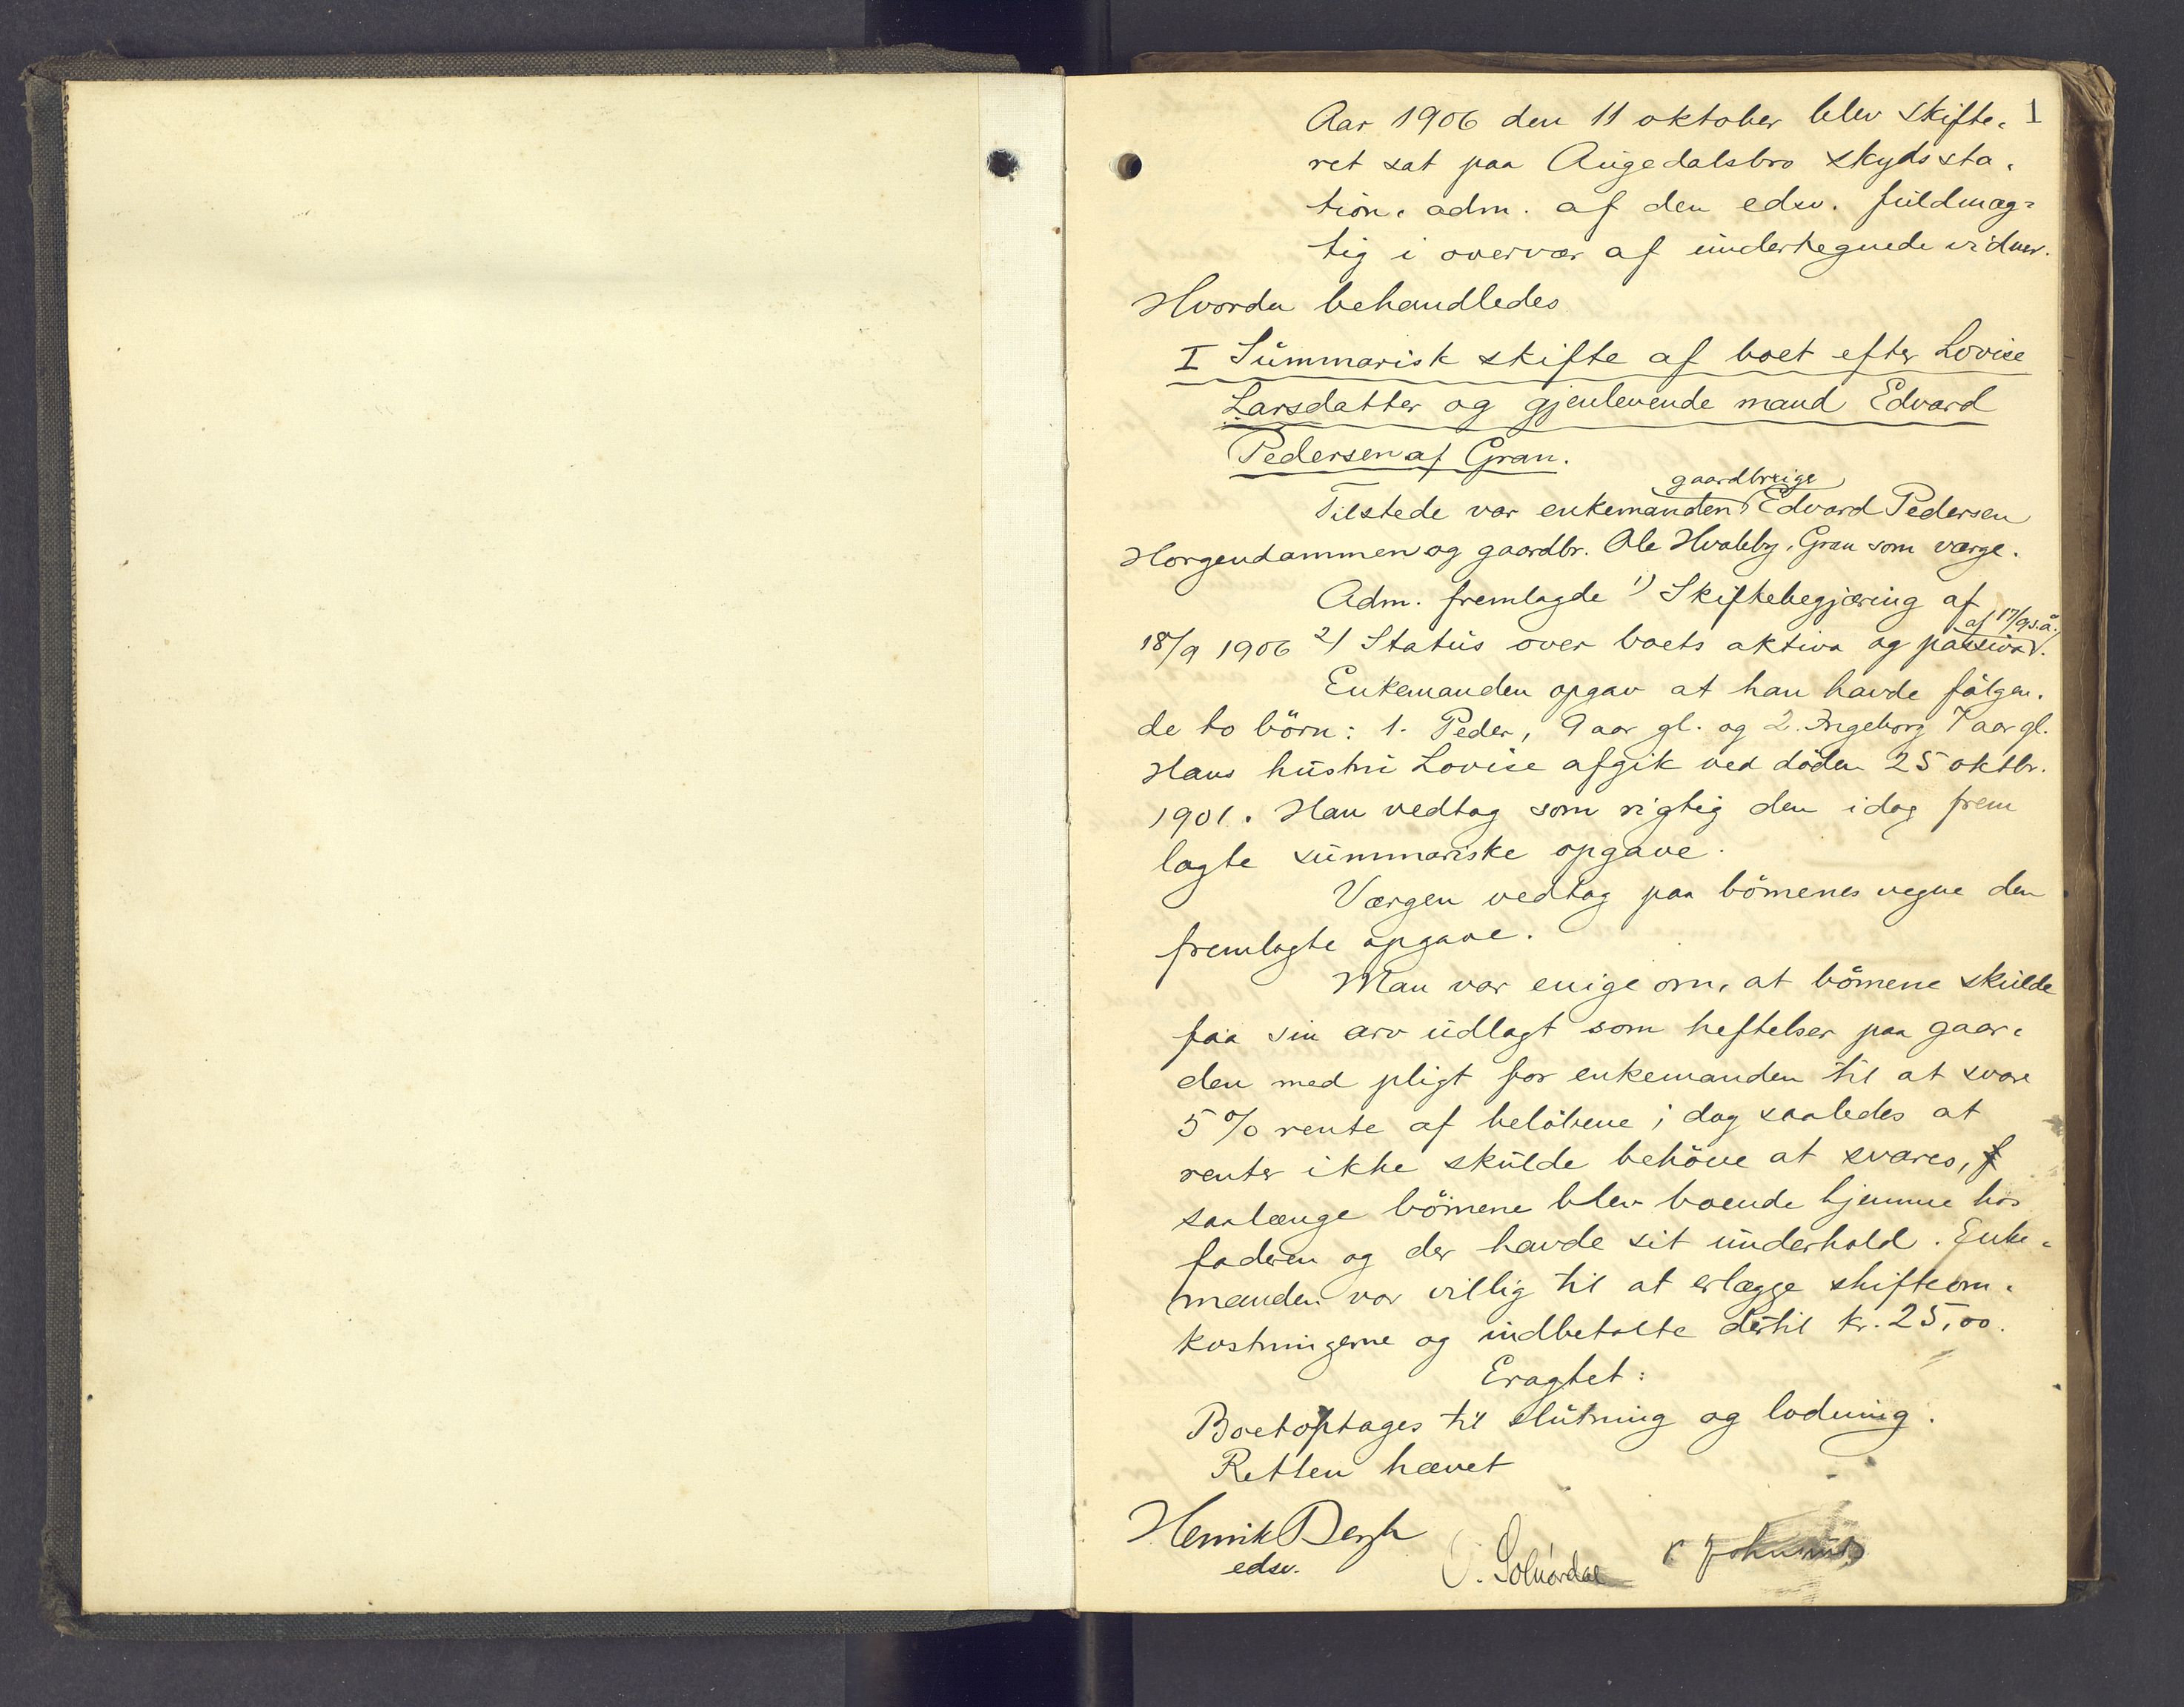 Aar 1906 den 11 oktober blev skifte= 1
ret sat paa Augedalsbro skydssta=
tion, adm. af den edsv. fuldmæg=
tig i overvær af undertegnede vidner.
Hvorda behandledes
I Summarisk skifte af boet efter Lovise
Larsdatter og gjenlevende mand Edvard
Pedersen af Gran.
gaardbruger
Tilstede var enkemanden Edvard Pedersen
Horgendammen og gaardbr. Ole Hvaleby, Gran som værge.
Adm. fremlagde 1) Skiftebegjæring af
af 17/9 s.å.
18/9 1906 2) Status over boets aktiva og passiva.
Enkemanden opgav at han havde følgen=
de to börn: 1. Peder, 9 aar gl. og 2. Ingeborg 7 aar gl.
Hans hustru Lovise afgik ved döden 25 oktbr.
1901. Han vedtog som rigtig den idag frem
lagte summariske opgave.
Værgen vedtog paa börnenes vegne den
fremlagte opgave.
Man var enige om, at börnene skulde
faa sin arv udlagt som heftelser paa gaar=
den med pligt for enkemanden til at svare
5 % rente af belöbene; dog saaledes at
renter ikke skulde behöve at svares,
saalænge börnene blev boende hjemme hos
faderen og der havde sit underhold. Enke=
manden var villig til at erlægge skifteom=
kostningerne og indbetalte dertil kr. 25,00.
Eragtet:
Boet optages til slutning og lodning.
Retten hævet
Henrik Bergh
edsv.